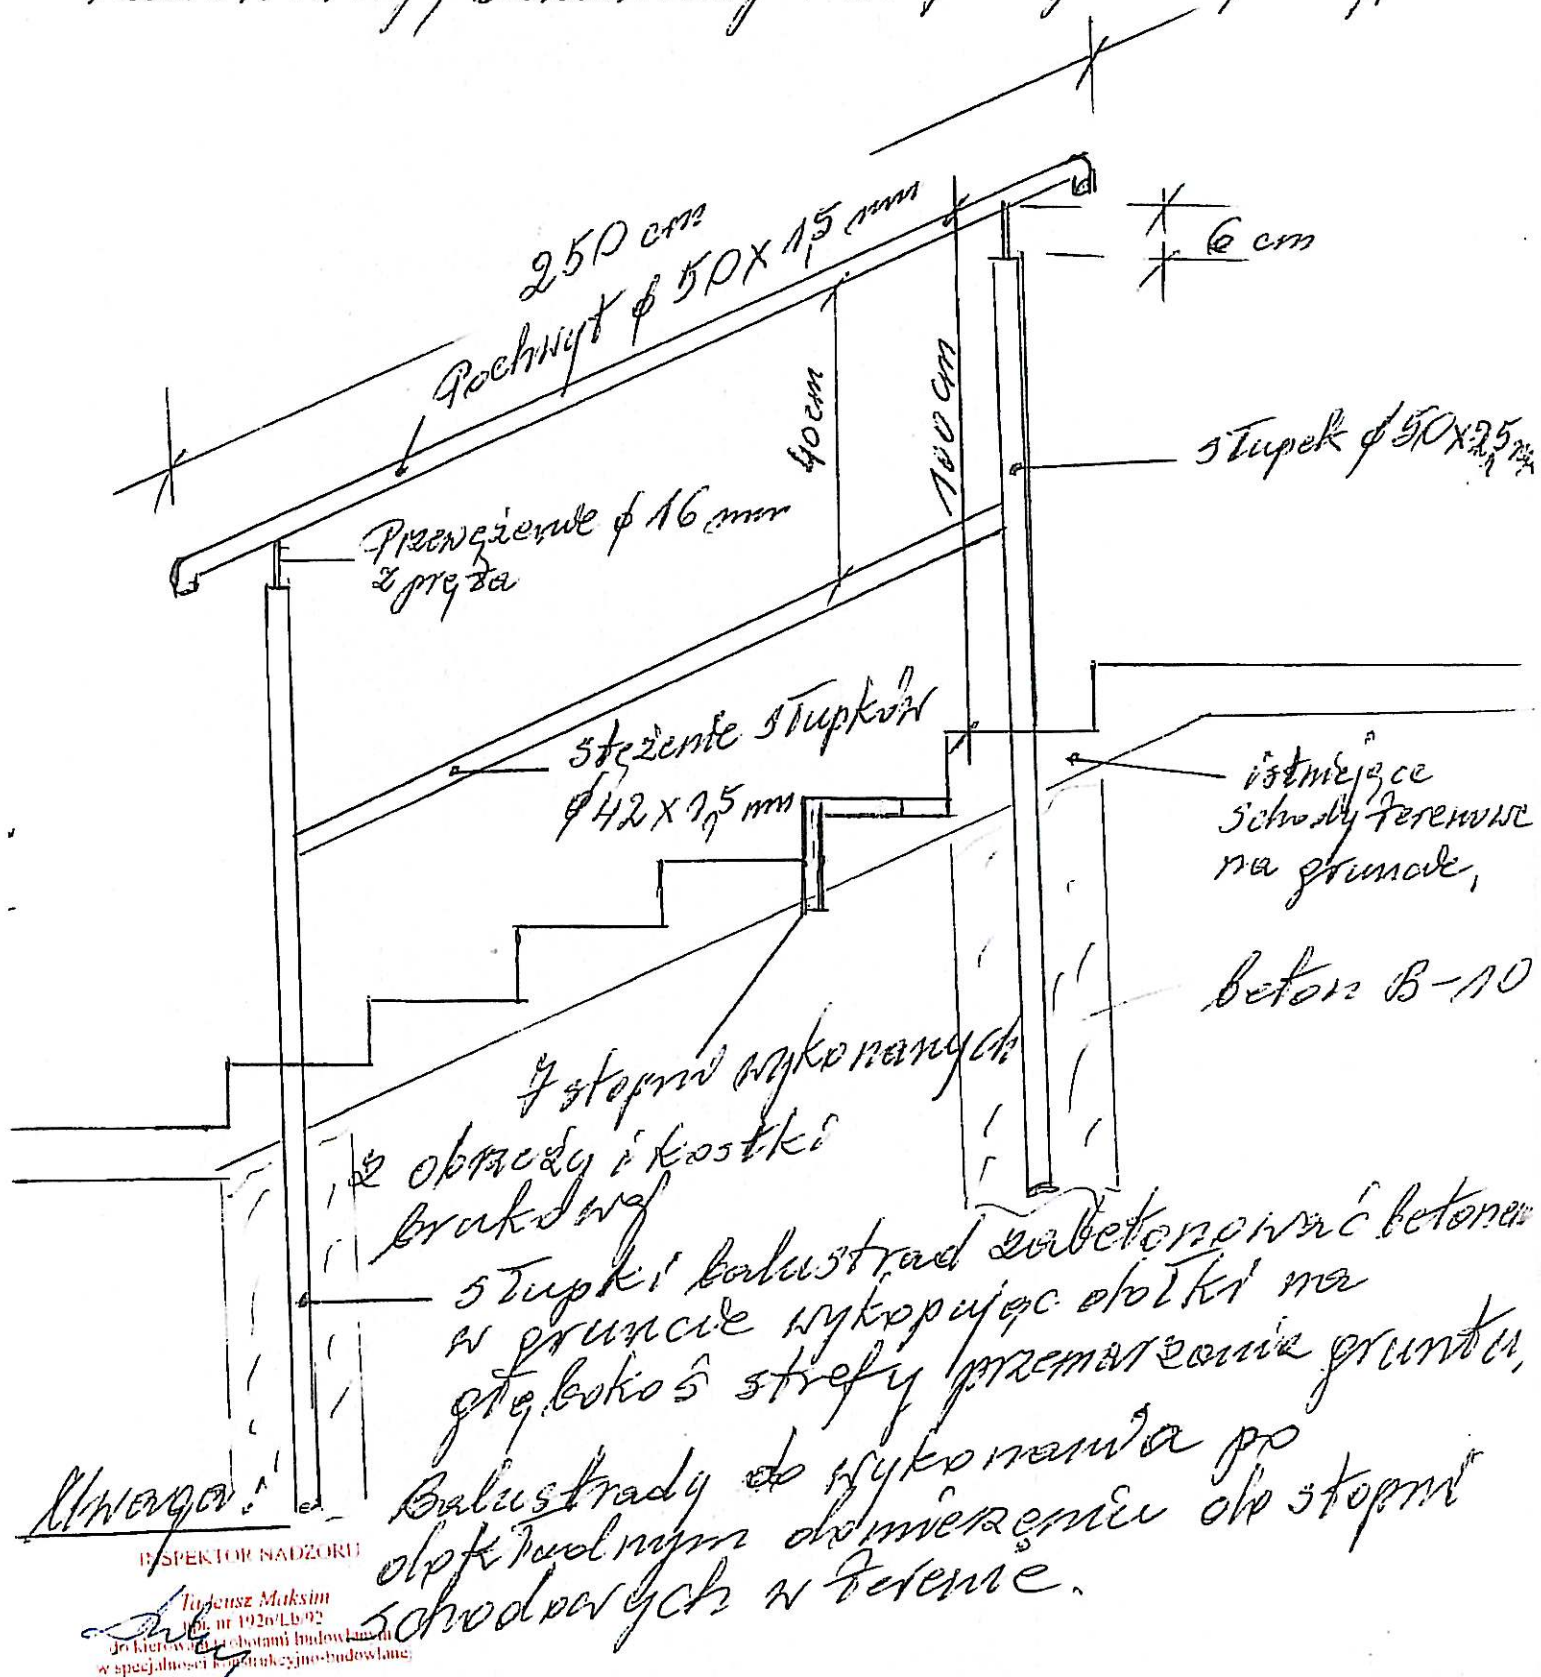 250 cm
Pochwyt ϕ 50 x 1,5 mm
6 cm
40 cm
100 cm
słupek ϕ 50 x 2,5
Przewężenie ϕ 16 mm
z pręta
stężenie słupków
ϕ 42 x 1,5 mm
istniejące
schody terenowe
na gruncie,
beton B-10
7 stopni wykonanych
z obrzeży i kostki
brukowej
słupki balustrad zabetonować betonem
w gruncie wykopując dołki na
głębokoś strefy przemarzania gruntu,
Uwaga! Balustrady do wykonania po
dokładnym domierzeniu do stopni
schodowych w terenie.
INSPEKTOR NADZORU
Tadeusz Maksim
upr. nr 1926/Lb/92
do kierowania robotami budowlanymi
w specjalności konstrukcyjno-budowlanej